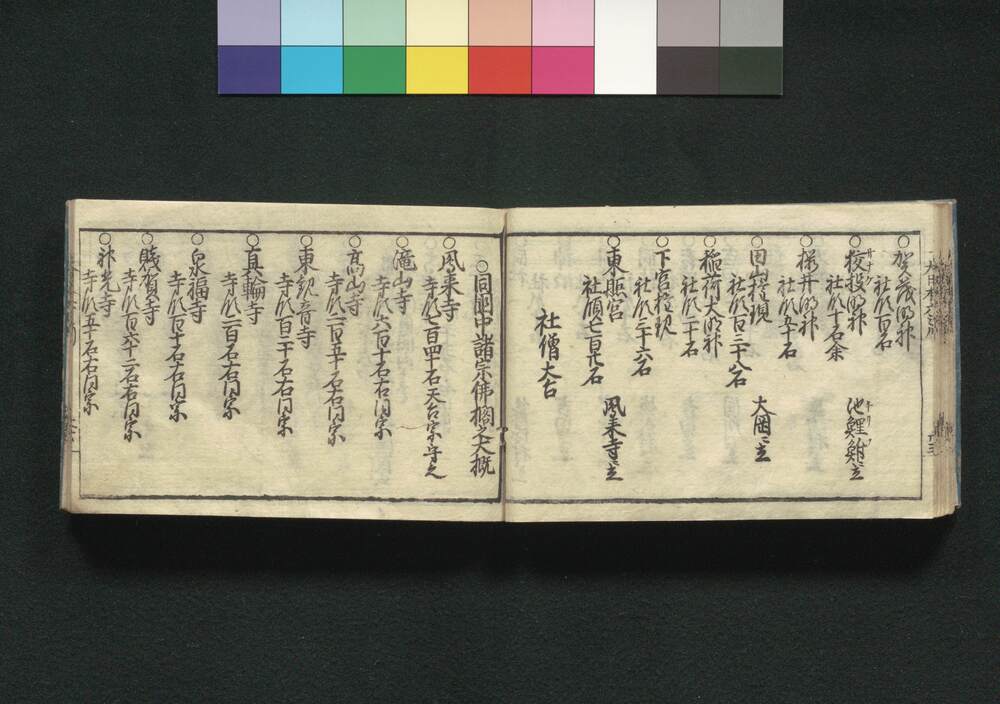 ○賀茂明神
社領百石
○猿投明神
サナゲ
社領
池鯉鮒ニ立
○桜井明神
社領五十石
○白山権現
社領百三十八石
大岡ニ立
○稲荷大明神
社領二十石
○下宮権現
社領二十六石
○東照宮
社領七百
石
鳳来寺ニ立
社僧大古
○同国中諸宗佛閣之大概
○鳳来寺
寺領七百四十石天台宗
○滝山寺
寺領六百十石右同宗
○高山寺
寺領二百五十石右同宗
○東観音寺
寺領百二十石右同宗
○真輪寺
寺領二百石右同宗
○泉福寺
寺領百五十石右同宗
○賤賀寺
寺領百六十二石右同宗
○神光寺
寺領五十石右同宗